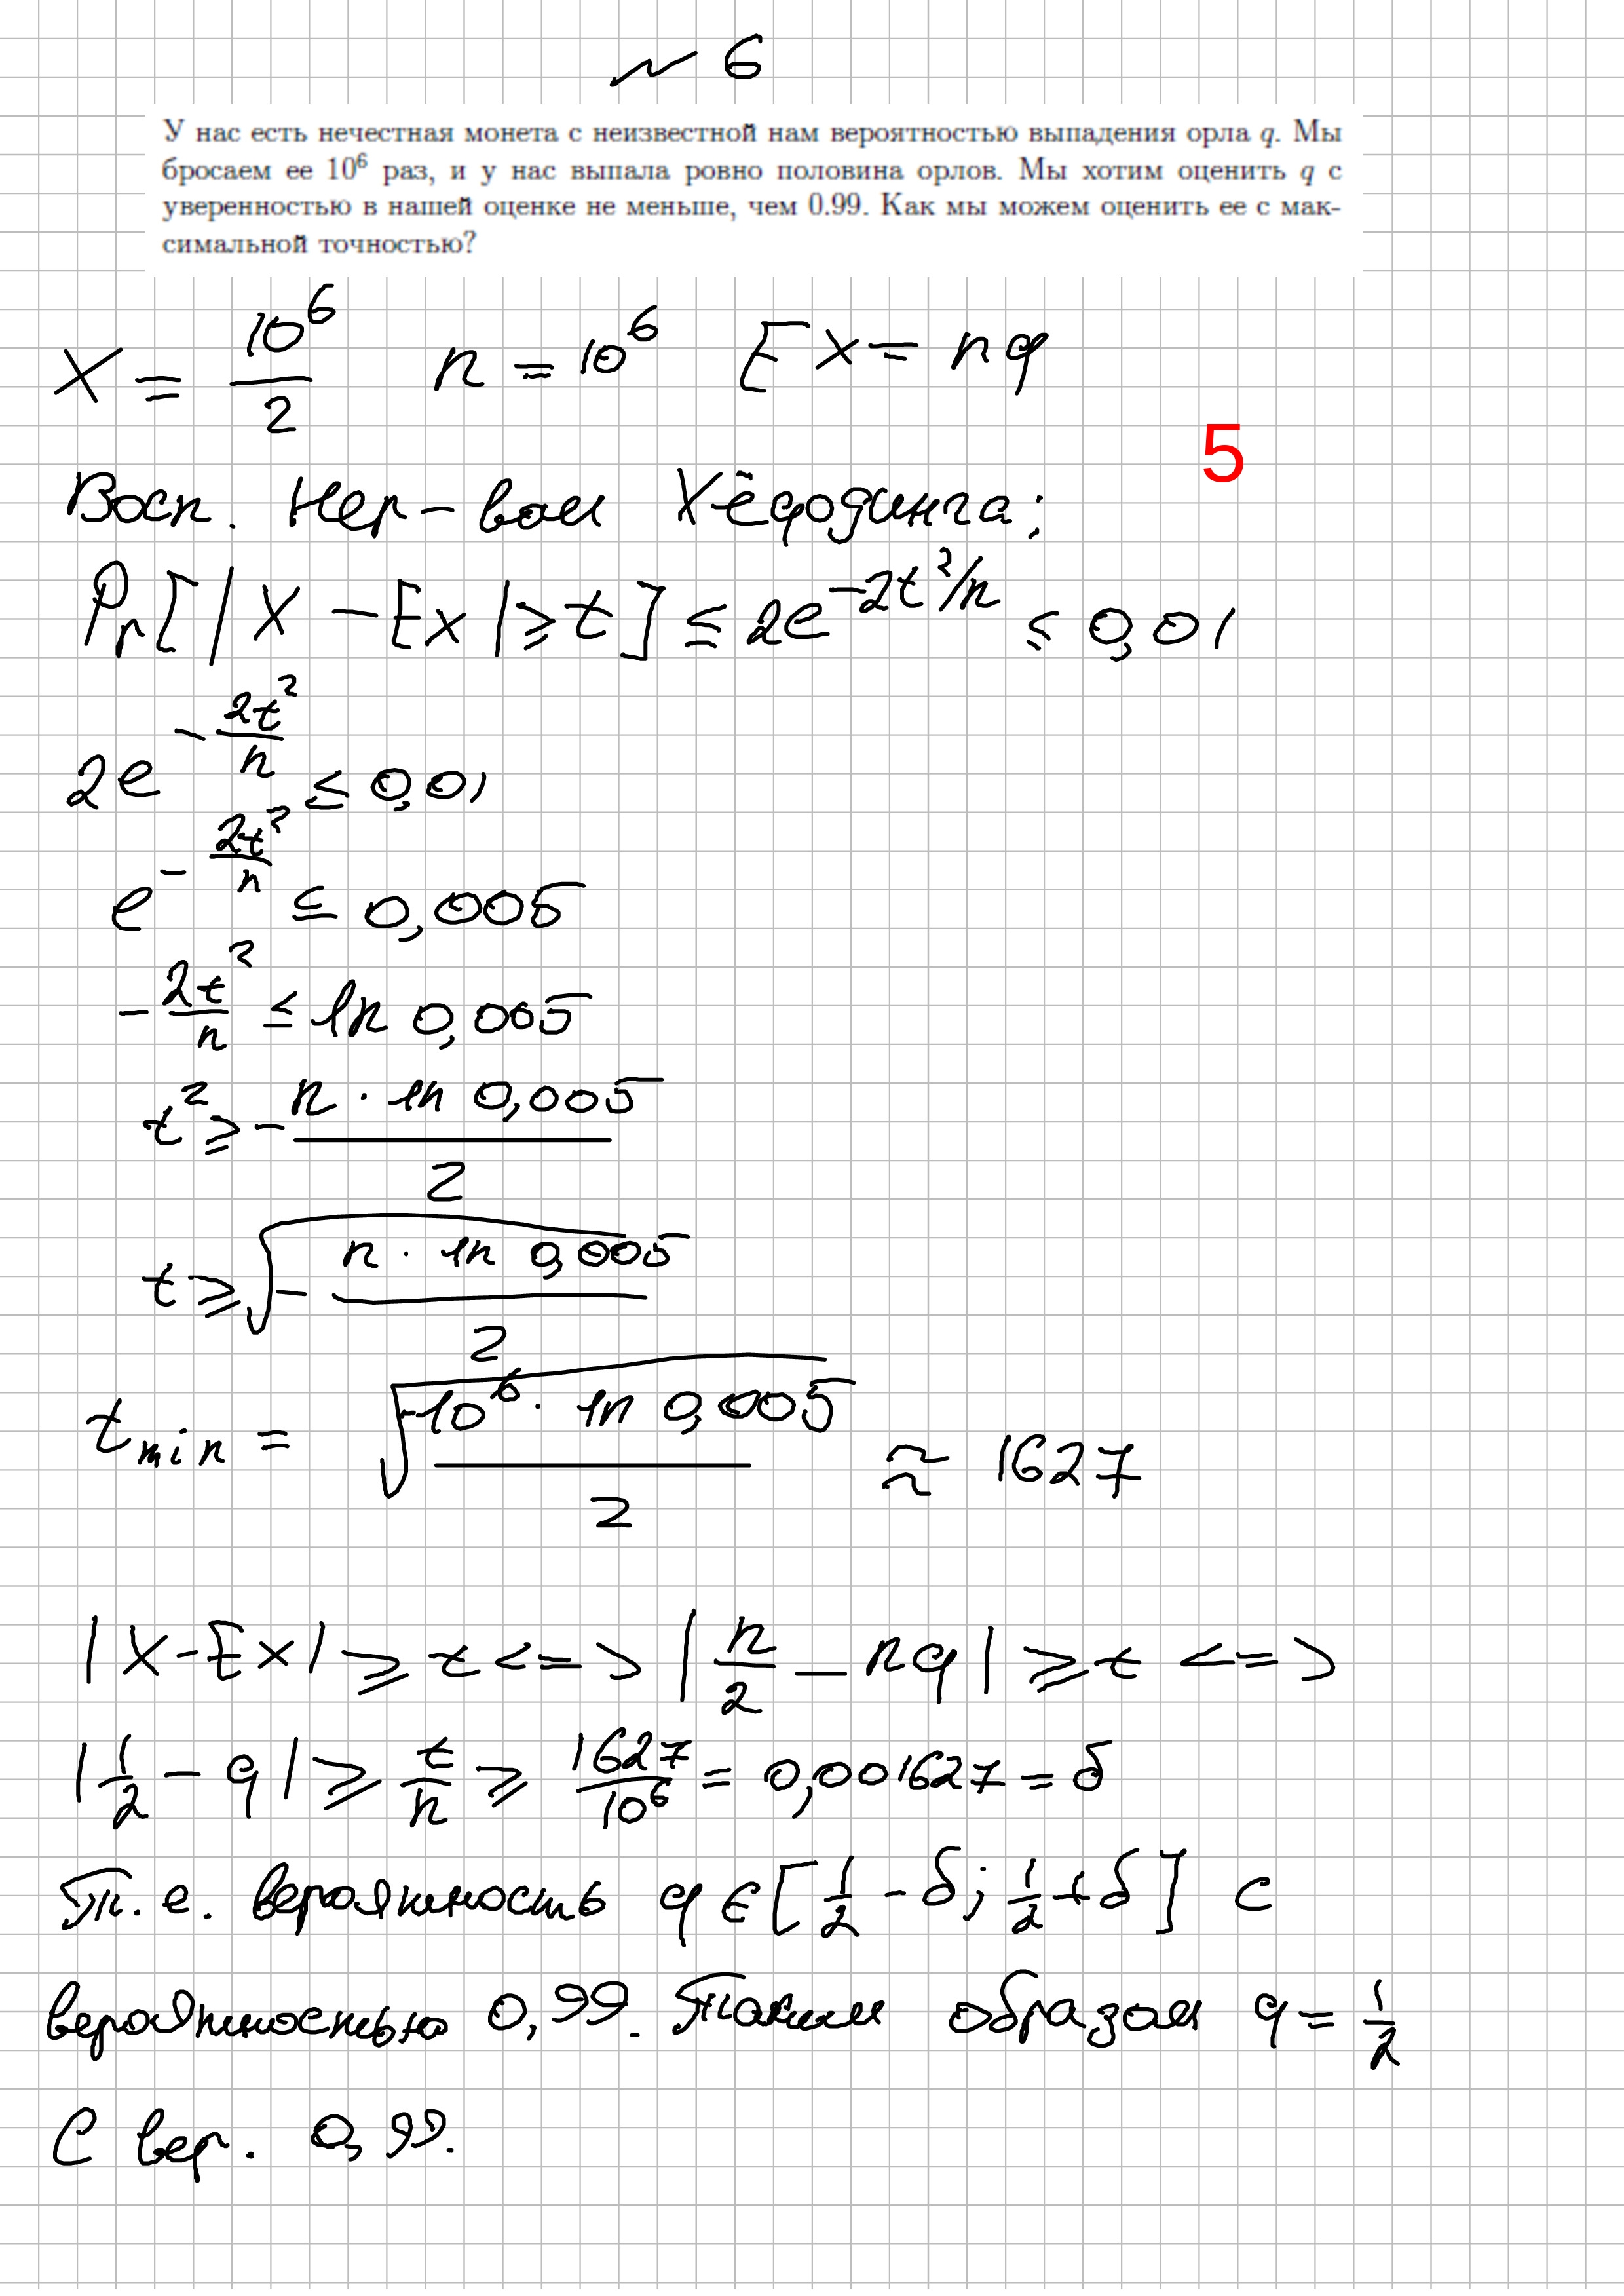 ~ 6
У нас есть нечестная монета с неизвестной нам вероятностью выпадения орла q. Мы
бросаем ее 10^6 раз, и у нас выпала ровно половина орлов. Мы хотим оценить q с
уверенностью в нашей оценке не меньше, чем 0.99. Как мы можем оценить ее с мак-
симальной точностью?
X = 10^6/2 n = 10^6 EX = nq
5
Восп. Нер-вом Хёфдинга:
Pr[|X - EX| ≥ t] ≤ 2e^{-2t^2/n} ≤ 0,01
2e^{-2t^2/n} ≤ 0,01
e^{-2t^2/n} ≤ 0,005
-2t^2/n ≤ ln 0,005
t^2 ≥ -(n · ln 0,005)/2
t ≥ √(-(n · ln 0,005)/2)
t_min = √((-10^6 · ln 0,005)/2) ≈ 1627
|X - EX| ≥ t <=> |n/2 - nq| ≥ t <=>
|1/2 - q| ≥ t/n ≥ 1627/10^6 = 0,001627 = δ
Т.е. вероятность q ∈ [1/2 - δ; 1/2 + δ] с
вероятностью 0,99. Таким образом q = 1/2
С вер. 0,99.